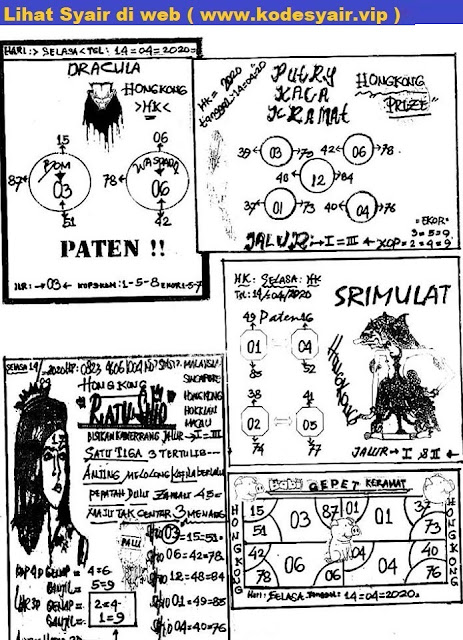 Lihat Syair di web ( www.kodesyair.vip )
HARI:> SELASA < TGL: 14=04=2020=
DRACULA
HONGKONG
>HK<
15
06
BOM
WASPADA
87
03
78
06
51
42
PATEN !!
03
1-5-8
HK= 2020
tanggal:14=04=20
PUTRY
KACA
KRAMAT
HONGKONG
PRIZE
39 03 79 42 06 78
40 12 84
37 01 73 40 04 76
=EKOR=
3=5=9
JALUR:→I=III← KOP=2=4=9
HK: SELASA: HK
TGL: 14/04/2020
SRIMULAT
49 Paten 46
01 04
85 52
38 41
02 05
74 77
HONGKONG
JALUR→I & II←
SELASA 14/
HONGKONG
RATU SHIO
MALAYSIA
SINGAPORE
HONGKONG
HOKKIAN
MACAU
BISIKAN KABENERRANG JALUR→I=III
SATU TIGA 3 TERTULIS---
ANJING MELOLONG KEPALA BERLALU
PEPATAH DULU ZAMAN 45=
MAJU TAK GENTER 3 MENANG
PALU
SHIO 03=15=51=
SHIO 06=42=78=
SHIO 12=48=84=
SHIO 01=49=85
SHIO 04=40=76
KOP 4D GENAP= 4=6
GANJIL= 5=9
GENAP=
GANJIL=
2=4
1=9
BABI GEPET KERAMAT
HONGKONG
15 03 87 01 01 37
51 73
42 06 04 04 40
78 06 76
HONGKONG
HARI: SELASA TANGGAL: 14=04=2020=